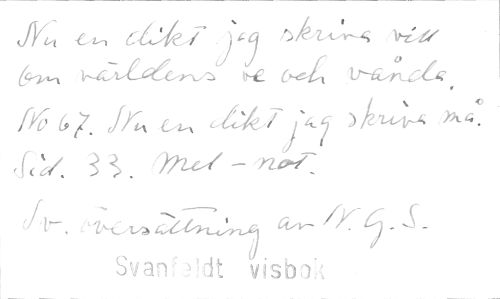 Nu en dikt jag skriva vill
om världens ve och vånda.
No 67. Nu en dikt jag skriva må.
Sid. 33. Mel-not.
Sv. översättning av N. G. S.
Svanfeldt visbok